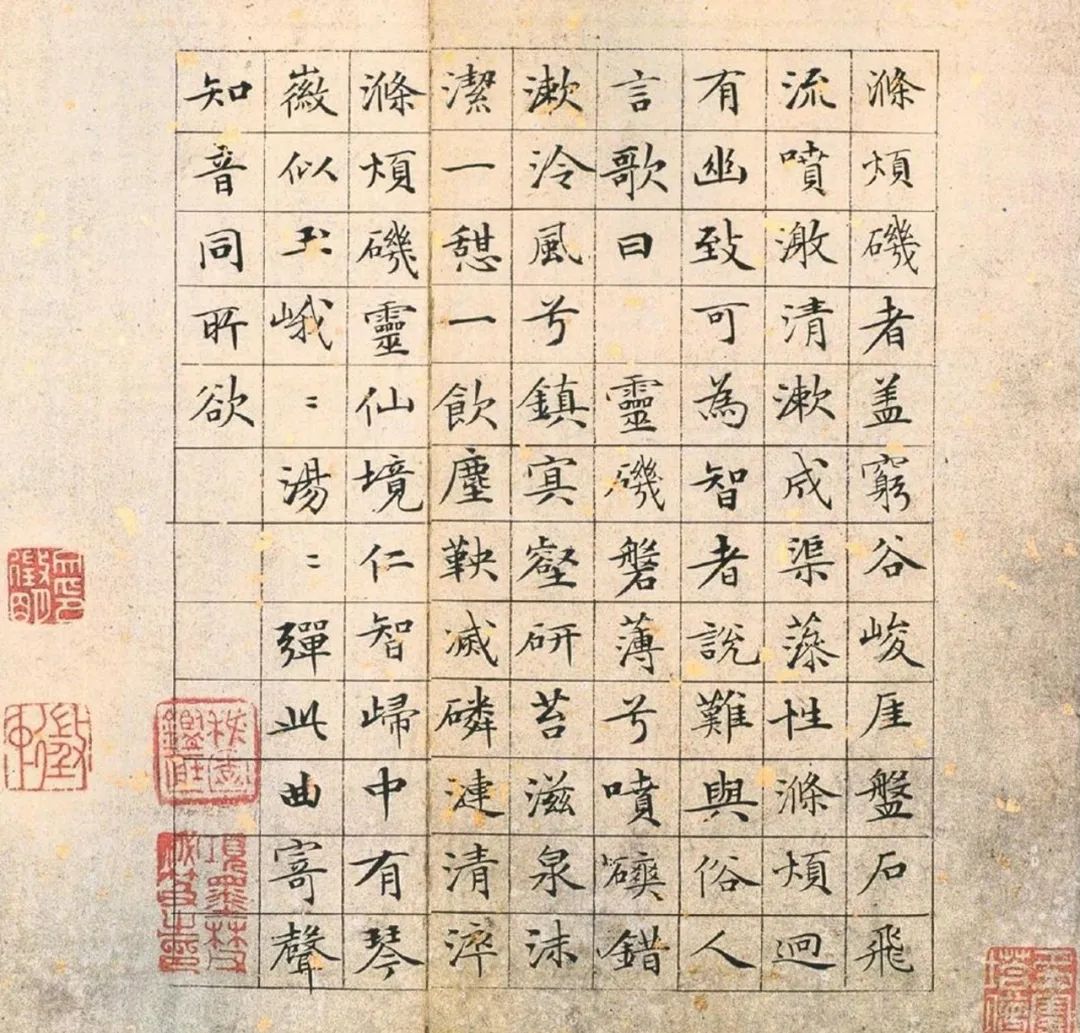 滌煩磯者盖窮谷峻厓盤石飛
流噴激清漱成渠藻性滌煩迥
有幽致可為智者說難與俗人
言歌曰　靈磯磐薄兮噴磢錯
漱泠風兮鎮冥壑研苔滋泉沫
潔一憩一飲塵鞅滅磷漣清淬
滌煩磯靈仙境仁智歸中有琴
徽似玉峨〻湯〻彈此曲寄聲
知音同所欲
項墨林父秘笈之印